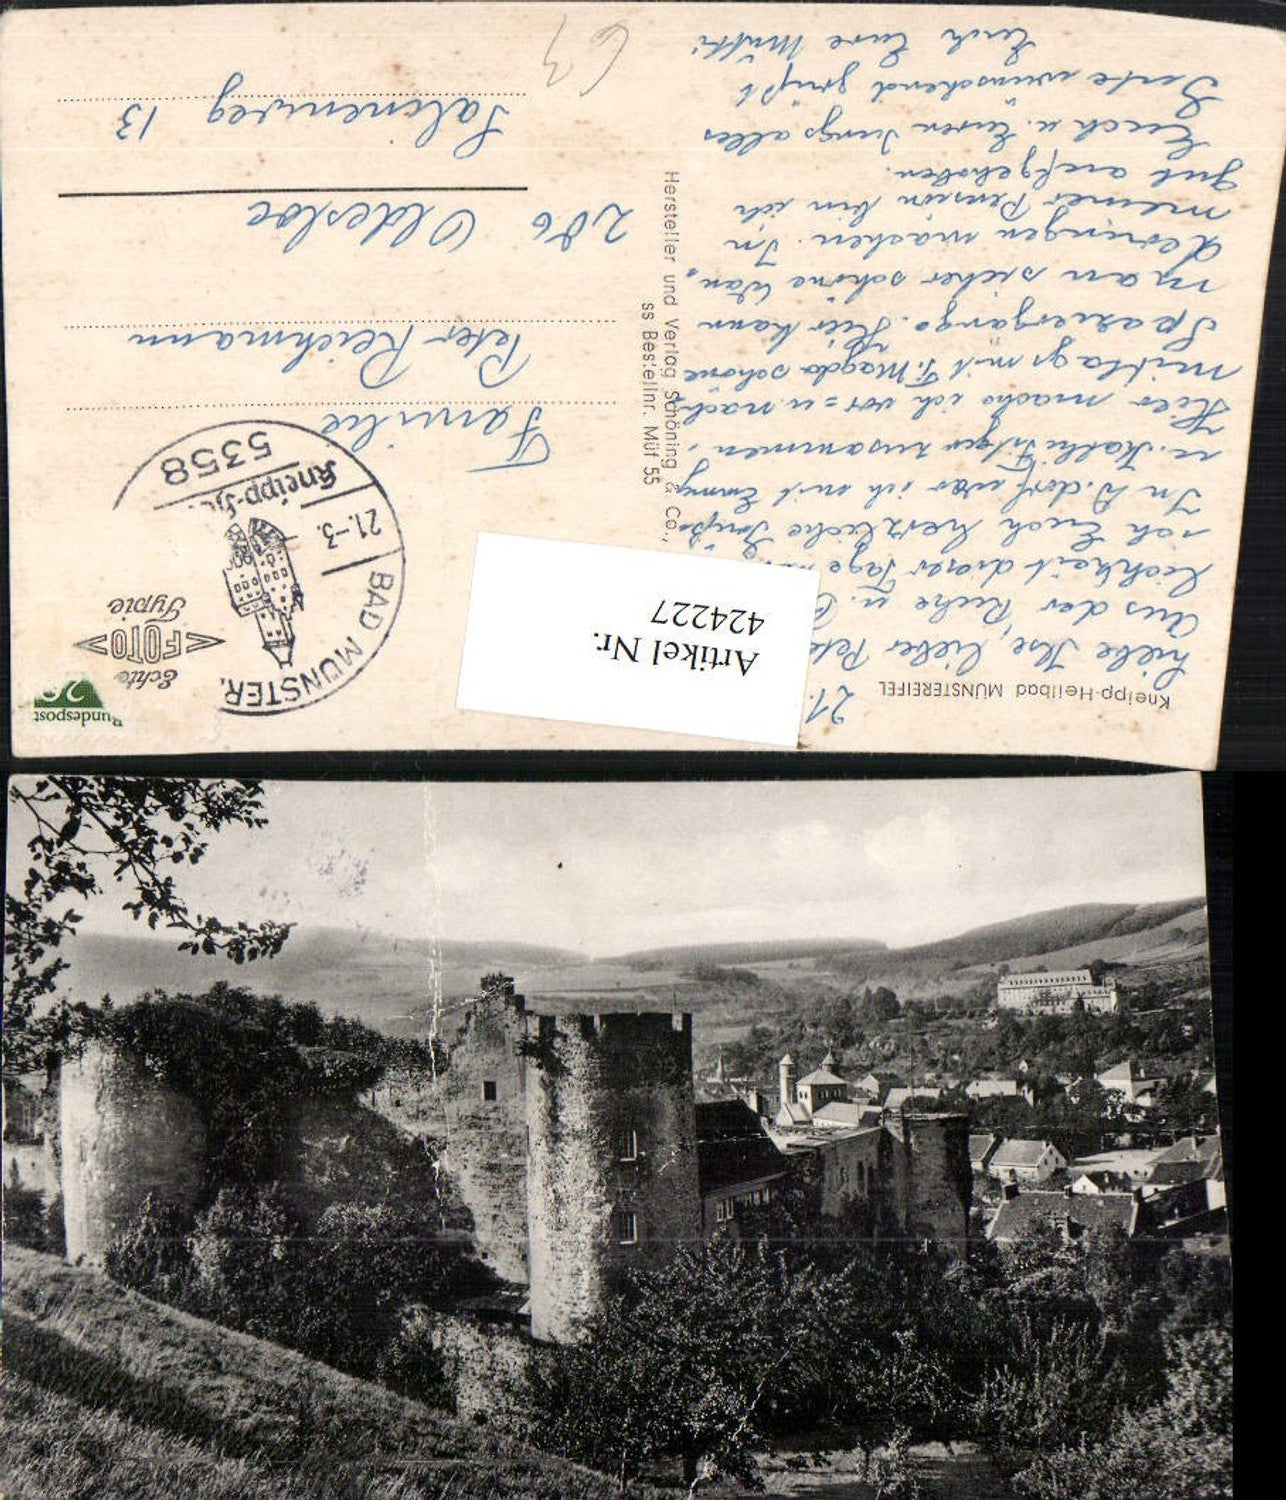 Kneipp-Heilbad MÜNSTEREIFEL
21.
Liebe Ilse, lieber Pete
Aus der Ruhe u.
lichkeit dieser Tage
ich Euch herzliche Grüße.
In D.dorf war ich mit Emmy
u. Käthe zusammen.
Hier mache ich vor= u. nach=
mittags mit F. Magda schöne
Spaziergänge. Hier kann
man sicher schöne Wan=
derungen machen. In
meiner Pension bin ich
gut aufgehoben.
Euch u. Euren Jungs alles
Gute wünschend grüßt
Euch Eure Mutti
Hersteller und Verlag Schöning & Co.,
ss Bestellnr. Müf 55
Artikel Nr.
424227
Bundespost
20
Echte
FOTO
Typie
BAD MÜNSTER
21.-3.
Kneipp-H
5358
Familie
Peter Reichmann
206 Oldesloe
Salinenweg 13
63